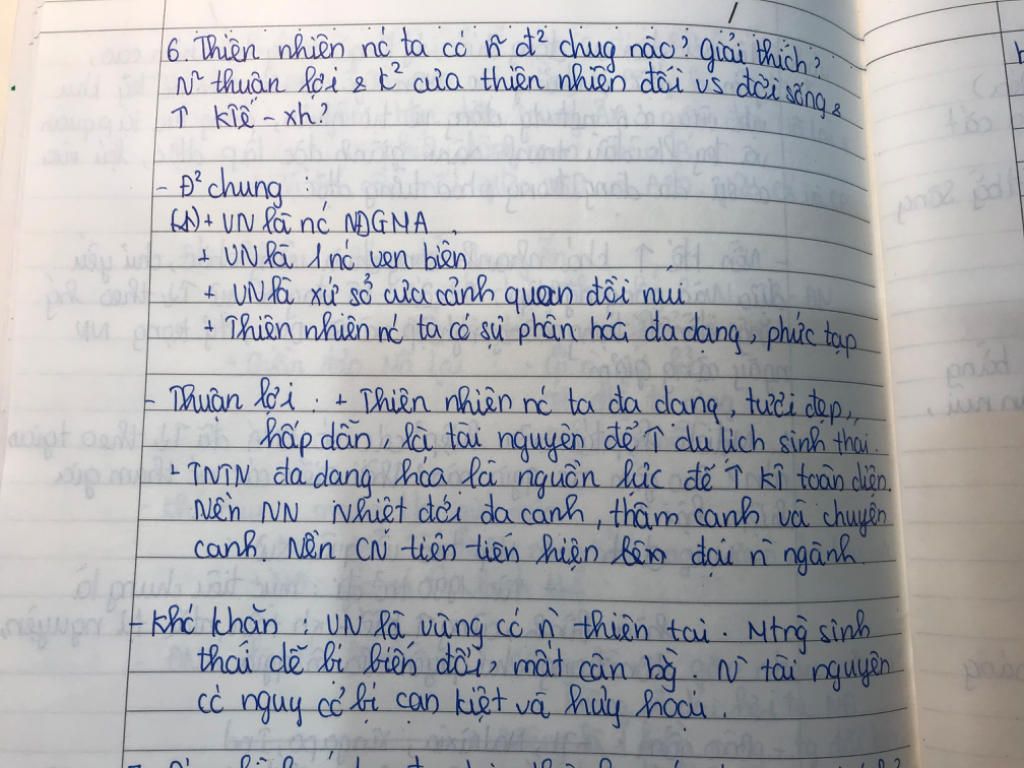 6. Thiên nhiên nć ta có ñ đ² chug nào? Giải thích?
Ñ thuận lợi & k² của thiên nhiên đối vs đời sống &
↑ kTế - xh?
- Đ² chung :
+ VN là nć NĐGMA
+ VN là 1 nć ven biển
+ VN là xứ sở của cảnh quan đồi núi
+ Thiên nhiên nć ta có sự phân hoá đa dạng, phức tạp
- Thuận lợi : + Thiên nhiên nć ta đa dạng, tươi đẹp,
hấp dẫn là tài nguyên để ↑ du lịch sinh thái.
+ TNTN đa dạng hóa là nguồn lực để ↑ kT toàn diện.
Nền NN Nhiệt đới đa canh, thâm canh và chuyên
canh. Nền CN tiên tiến hiện đại ǹ ngành.
+ khó khăn : VN là vùng có ǹ thiên tai. Mtrg sinh
thái dễ bị biến đổi mất cân bg. Ǹ tài nguyên
có nguy cơ bị cạn kiệt và huỷ hoại.